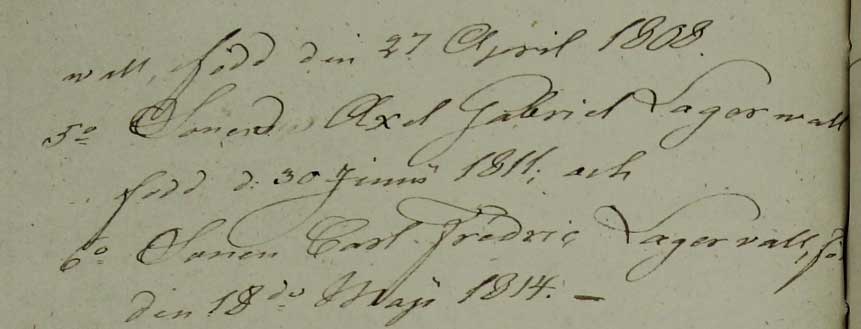 wall, född den 27 April 1808.
5o Sonen Axel Gabriel Lagerwall
född d: 30 Junii 1811; och
6o Sonen Carl Fredric Lagervall, fö
den 18de Maji 1814. –